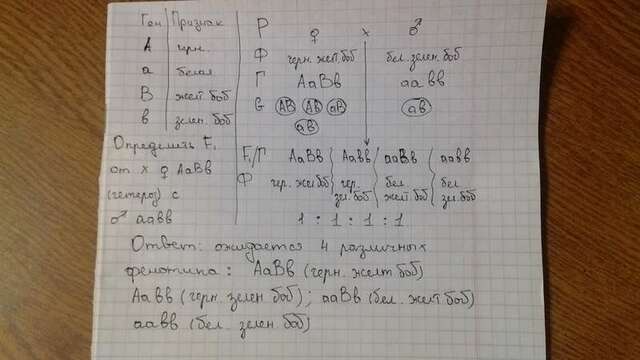 Ген Признак
А черн.
а белая
В желт боб
в зелен. боб
Определить F₁
от х ♀ АаВв
(гетероз) с
♂ аавв
Р ♀ х ♂
Ф черн. желт боб бел. зелен. боб
Г АаВв аавв
G АВ Ав аВ ав
ав
F₁/Г АаВв Аавв ааВв аавв
Ф чер. жел боб чер. зел. боб бел желт боб бел зел. боб
1 : 1 : 1 : 1
Ответ: ожидается 4 различных
фенотипа: АаВв (черн. желт боб)
Аавв (черн. зелен боб); ааВв (бел. желт боб)
аавв (бел. зелен. боб)